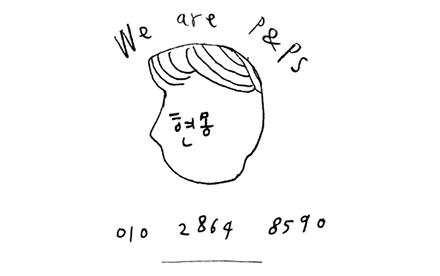 We are P&Ps
현몽
010 2864 8590